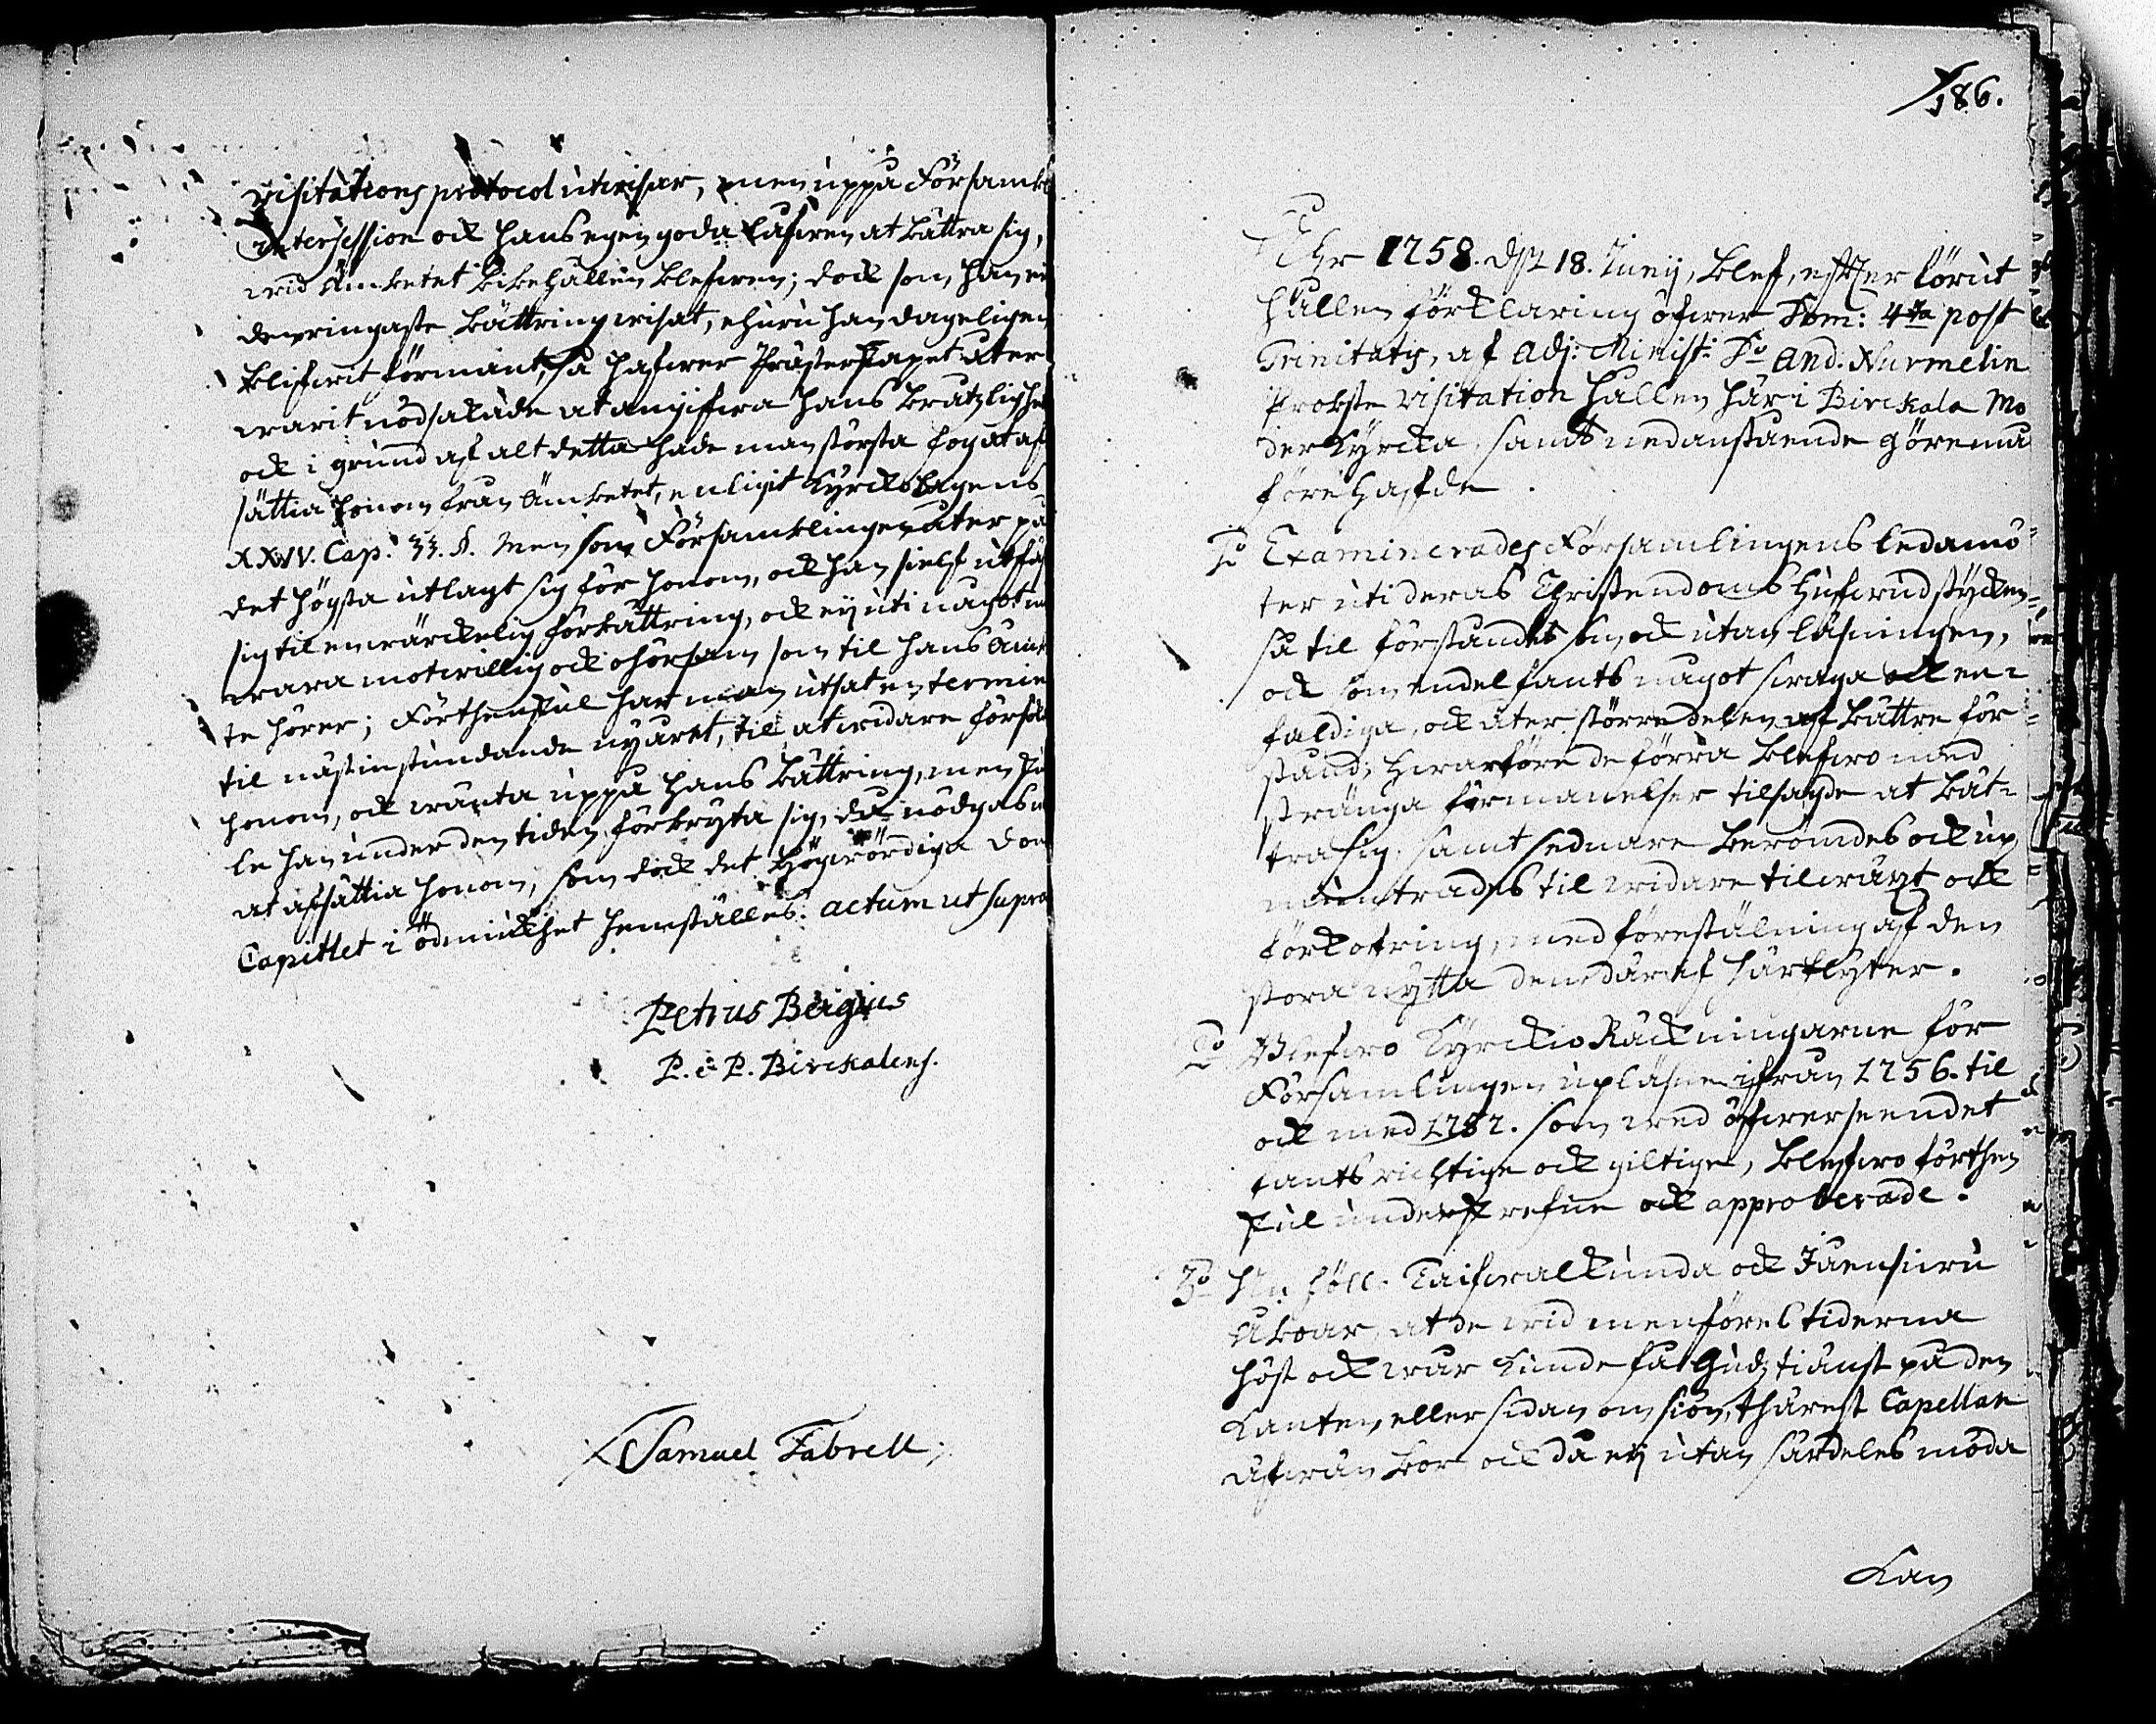 visitations protocol utvisar, men uppå Församl
intersession och hans egen goda låfwen at bättra sig,
wid Ämbetet bibehållen blefwen; dock som han ei
den ringaste bättring wisat, ehuru han dageligen
blifwit förmant, så hafwer Prästerskapet åter
warit nödsakade at angifwa hans brotzlighe
och i grund af alt detta hade man största fog at af
sättia honom från Ämbetet, enligit Kyrckolagens
XXIV. Cap. 33. §. Men som Församblingen åter på
det högsta utlagt sig för honom, och han sielf utfäst
sig til en wärckelig förbättring, och ej uti något må
wara motwillig och ohörsam som til hans Ämb
te hörer; Förthenskul har man utsat en termin
til nästinstundande nyåret, til at widare försök
honom, och wänta uppå hans bättring, men skul
le han under den tiden förbryta sig, då nödgas m
at afsättia honom, som dock det Högwördiga Dom
Capitlet i ödmiukhet hemställes. Actum ut supra
Petrus Bergius
P. & P. Birckalens.
Samuel Fabrell,
186.
Åhr 1758. d. 18. Junij, blef, efter förut
hållen förklaring öfwer Dom: 4ta post
Trinitatis, af Adj: Minist: Do And. Nurmelin
Probste visitation hållen här i Birckala Mo
der Kyrcka, samt nedanstående göremå
förehafde.
1o Examinerades Församlingens ledamö
ter uti deras Christendoms Hufwudstycken
så til förståndet som och utan läsningen,
och som en del fants något swaga och en=
faldiga, och åter större delen af bättre för
stånd; Hwarföre de förra blefwo med
stränga förmanelser tilsagde at bät=
tra sig, samt sednare berömdes och up
muntrades til widare tilwäxt och
förkofring, med föreställning af den
stora nytta dem däraf härflyter.
2o Blefwo Kyrckio Räckningarne för
Församlingen upläsne ifrån 1756. til
och med 1757. som wid öfwerseendet
fants richtige och giltige, blefwo förthen
skul underskrefne och approberade.
3o Anhöll Taifwalkunda och
Åboar, at de wid menföres tiderna
höst och wår kunde få Gudztiänst på den
kanten, eller sidan om siön, thärest Capellan
äfwen bor och då ej utan särdeles möda
Kan